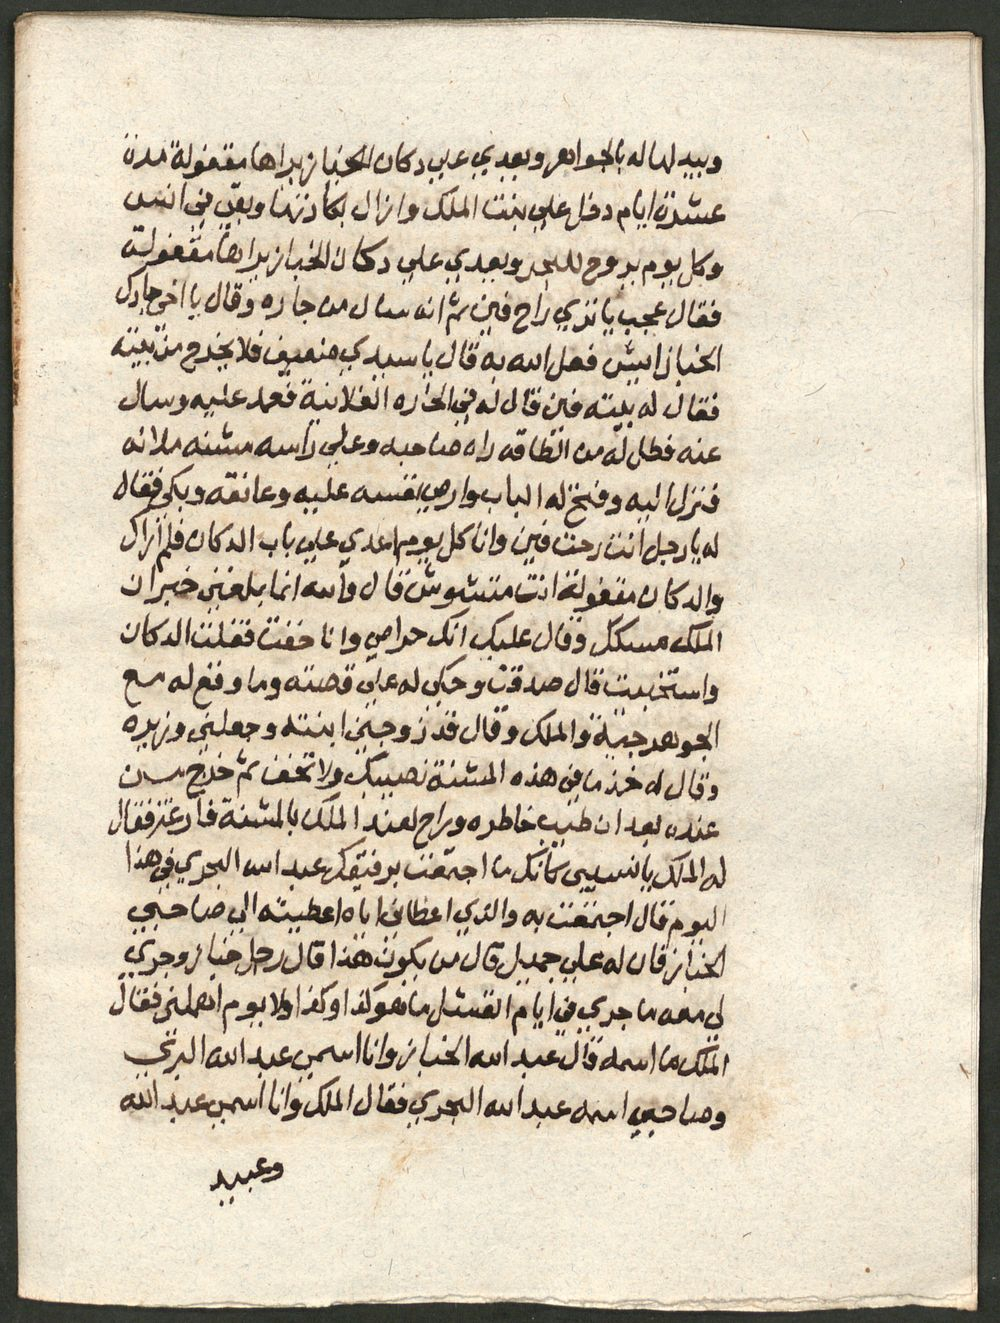 ويبدلها له بالجواهر ويعدي علي دكان الخباز يراها مقفولة مدة
عشرة ايام دخل علي بنت الملك وازال بكارتها وبقي في انس
وكل يوم يروح للبحر ويعدي علي دكان الخباز يراها مقفولة
فقال عجب يا تري راح فين ثم انه سال من جاره وقال يا اخي جارك
الخباز ايش فعل الله به قال يا سيدي ضعيف فلا يخرج من بيته
فقال له بيته فين قال له في الحاره الفلانية فعمد عليه وسال
عنه فطل له من الطاقه راه صاحبه وعلي راسه مشنه ملانه
فنزل اليه وفتح له الباب وارمي نفسه عليه وعانقه وبكي فقال
له يا رجل انت رحت فين وانا كل يوم اعدي علي باب الدكان فلم اراك
والدكان مقفولة انت متشوش قال والله انما بلغني خبر ان
الملك مسكك وقال عليك انك حرامي وانا خفت قفلت الدكان
واستخبيت قال صدقت وحكي له علي قصته وما وقع له مع
الجوهرجية والملك وقال قد زوجني ابنته وجعلني وزيره
وقال له خذ ما في هذه المشنة نصيبك ولا تخف ثم خرج من
عنده بعد ان طيب خاطره وراح لعند الملك بالمشنة فارغة فقال
له الملك يا نسيبي كانك ما اجتمعت برفيقك عبد الله البحري في هذا
اليوم قال اجتمعت به والذي اعطاني اياه اعطيته الي صاحبي
الخباز فان له علي جميل قال من يكون هذا قال رجل خباز وجري
لي معه ما جري في ايام الفشل ما هو كذا وكذا ولا يوم اهملني فقال
الملك ما اسمه قال عبد الله الخباز وانا اسمي عبد الله البري
وصاحبي اسمه عبد الله البحري فقال الملك وانا اسمي عبد الله
وعبيد